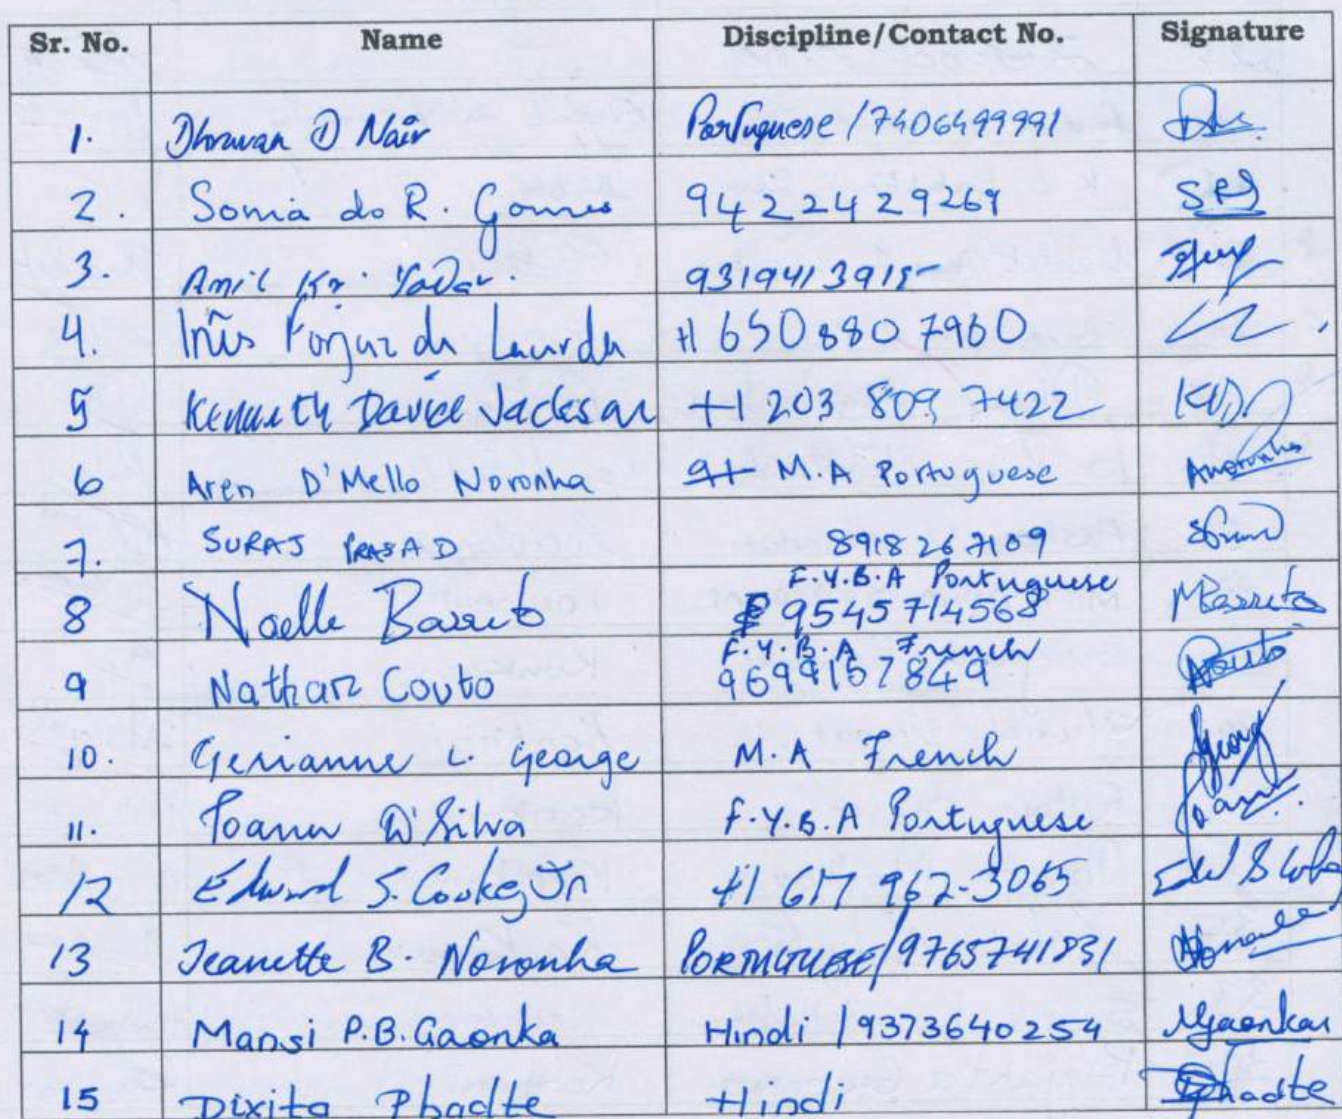 Sr. No. Name Discipline/Contact No. Signature
1. Dhruvan D Nair Portuguese / 7406499991
2. Sonia do R. Gomes 9422429269 SRG
3. Anil Kr. Yadav. 9319413915
4. Inês Forjaz de Lacerda +1 650 880 7960
5 Kenneth David Jackson +1 203 809 7422 KDJ
6 Aren D'Mello Noronha M.A Portuguese ANoronha
7. SURAJ PRASAD 8918267109
F.Y.B.A Portuguese
8 Noelle Barreto 9545714568 NBarreto
F.Y.B.A French
9 Nathan Couto 9699157849 NCouto
10. Gerianne L. George M.A French
11. Joanna D'Silva F.Y.B.A Portuguese
12 Edward S. Cooke, Jr +1 617 962-3065
13 Jeanette B. Noronha PORTUGUESE/9765741831
14 Mansi P.B. Gaonka Hindi / 9373640254 Mgaonkar
15 Dixita Phadte Hindi Phadte